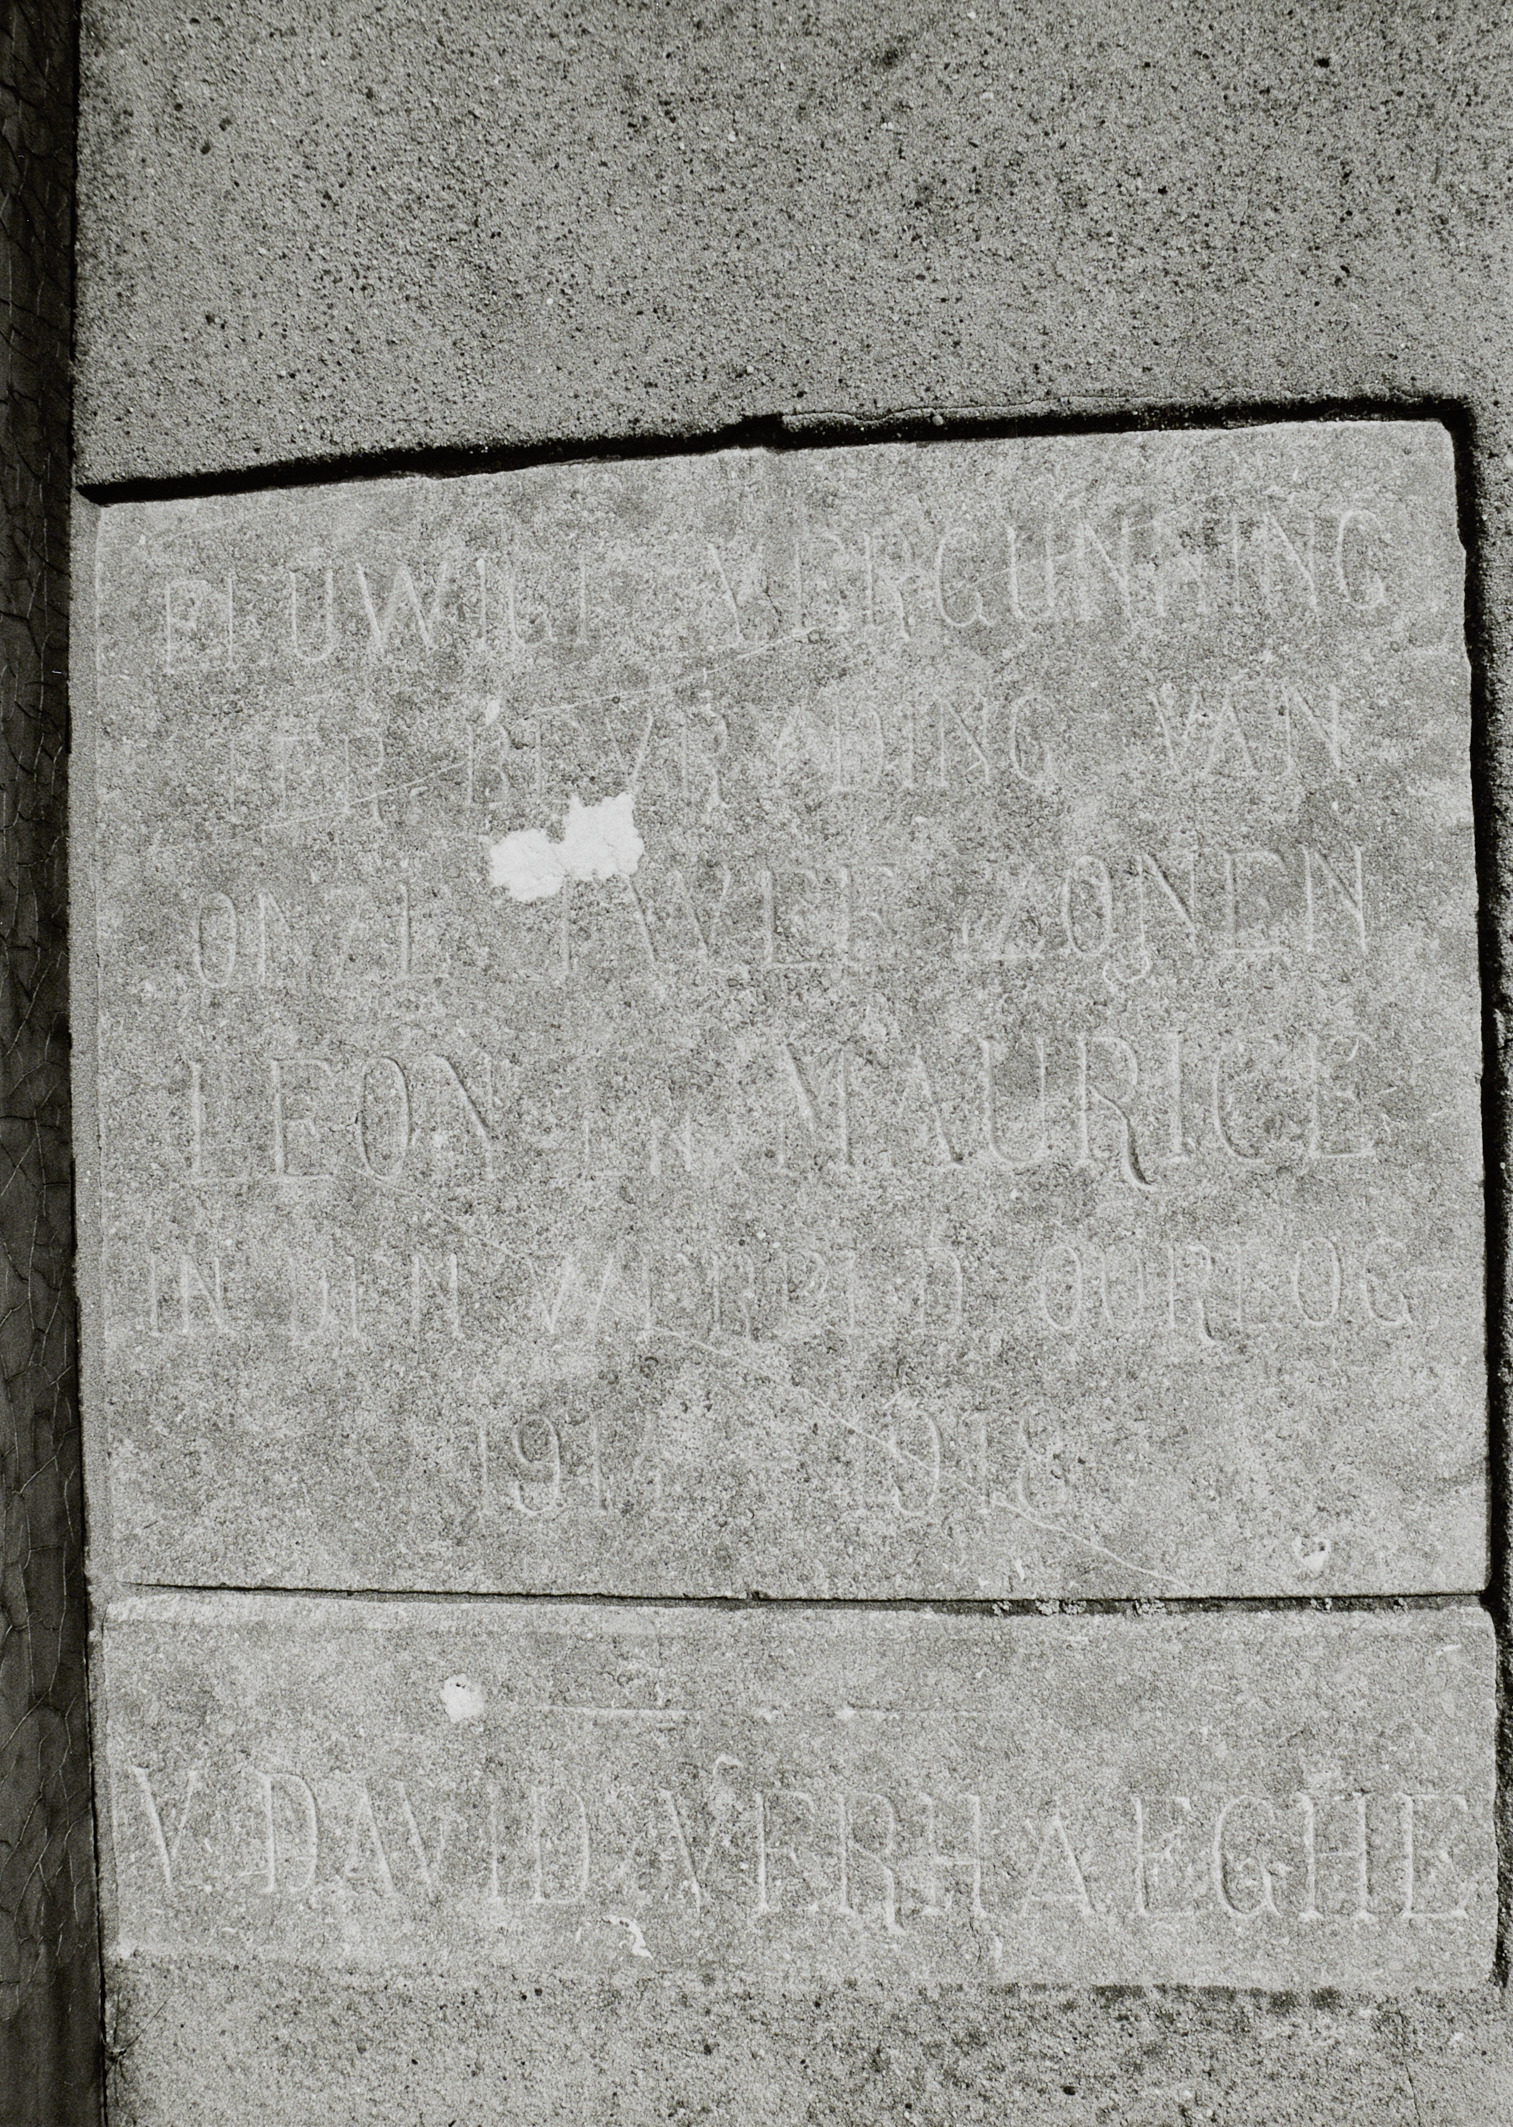 EEUWIGE VERGUNNING
TER BEVRYDING VAN
ONZE TWEE ZONEN
LEON EN MAURICE
IN DEN WERELD OORLOG
1914 - 1918
V. DAVID VERHAEGHE